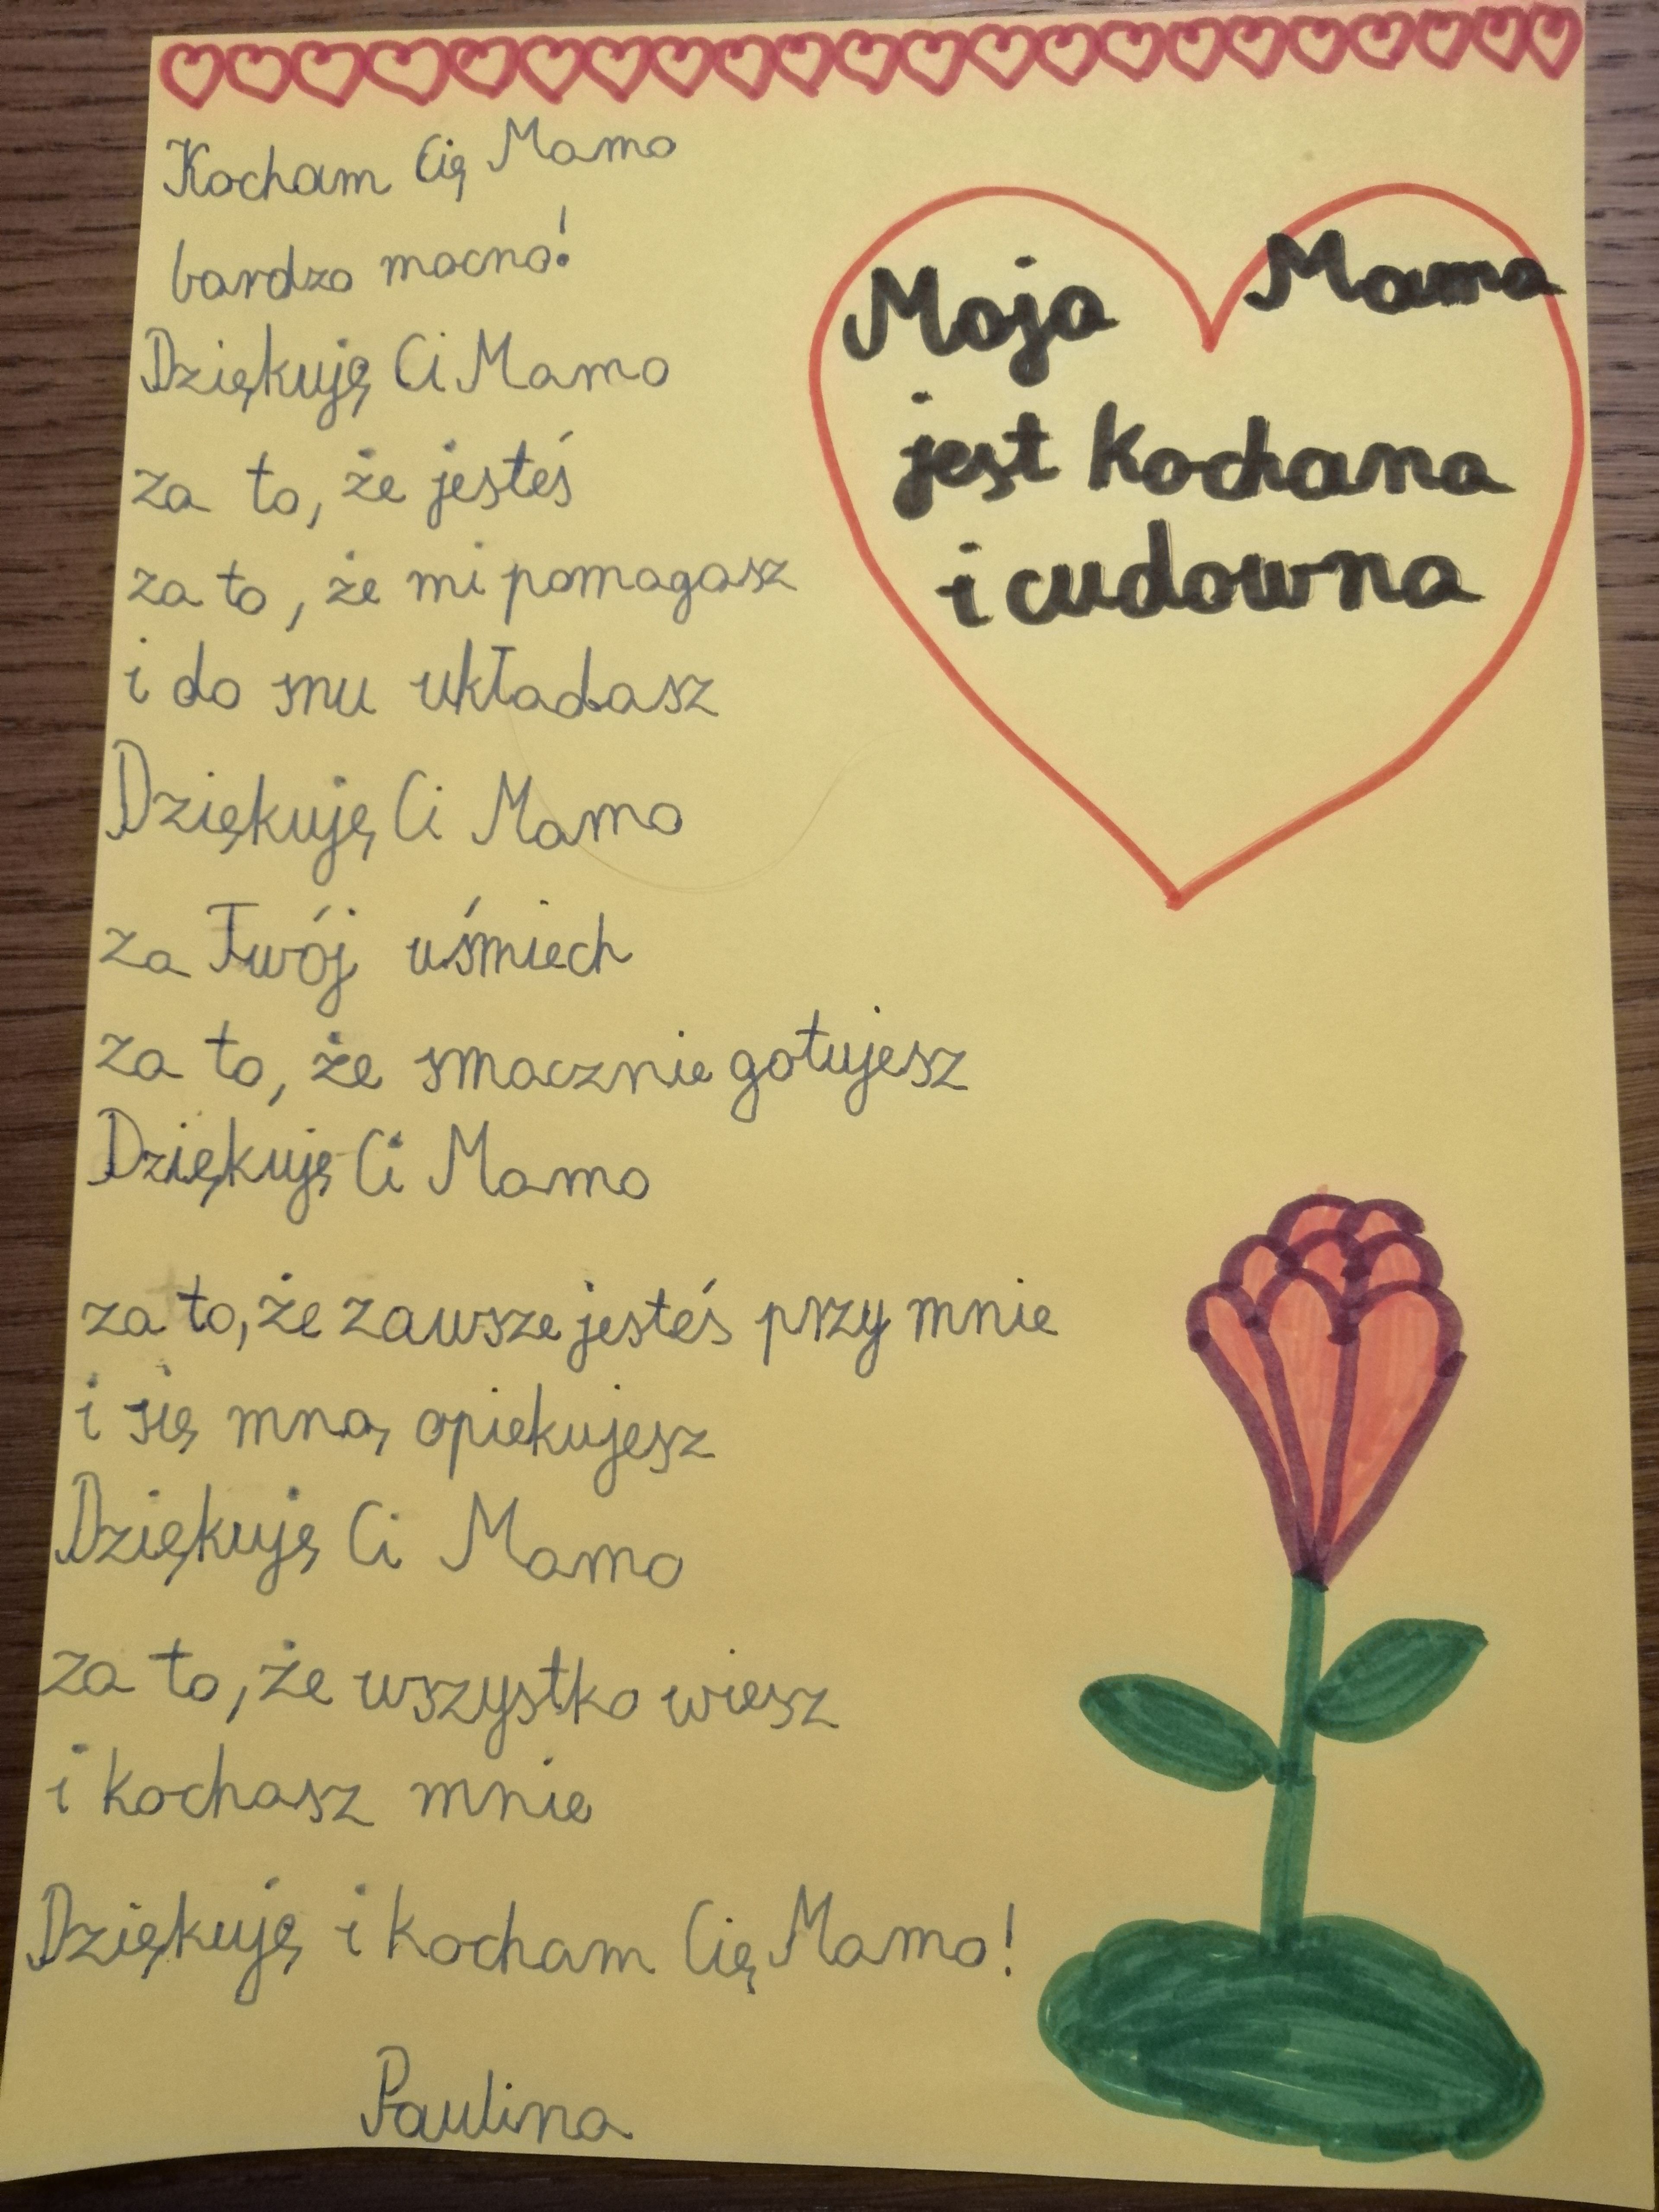 Kocham Cię Mamo
bardzo mocno!
Dziękuję Ci Mamo
za to, że jesteś
za to, że mi pomagasz
i do snu układasz
Dziękuję Ci Mamo
za Twój uśmiech
za to, że smacznie gotujesz
Dziękuję Ci Mamo
za to, że zawsze jesteś przy mnie
i się mną opiekujesz
Dziękuję Ci Mamo
za to, że wszystko wiesz
i kochasz mnie
Dziękuję i kocham Cię Mamo!
Paulina
Moja Mama
jest kochana
i cudowna